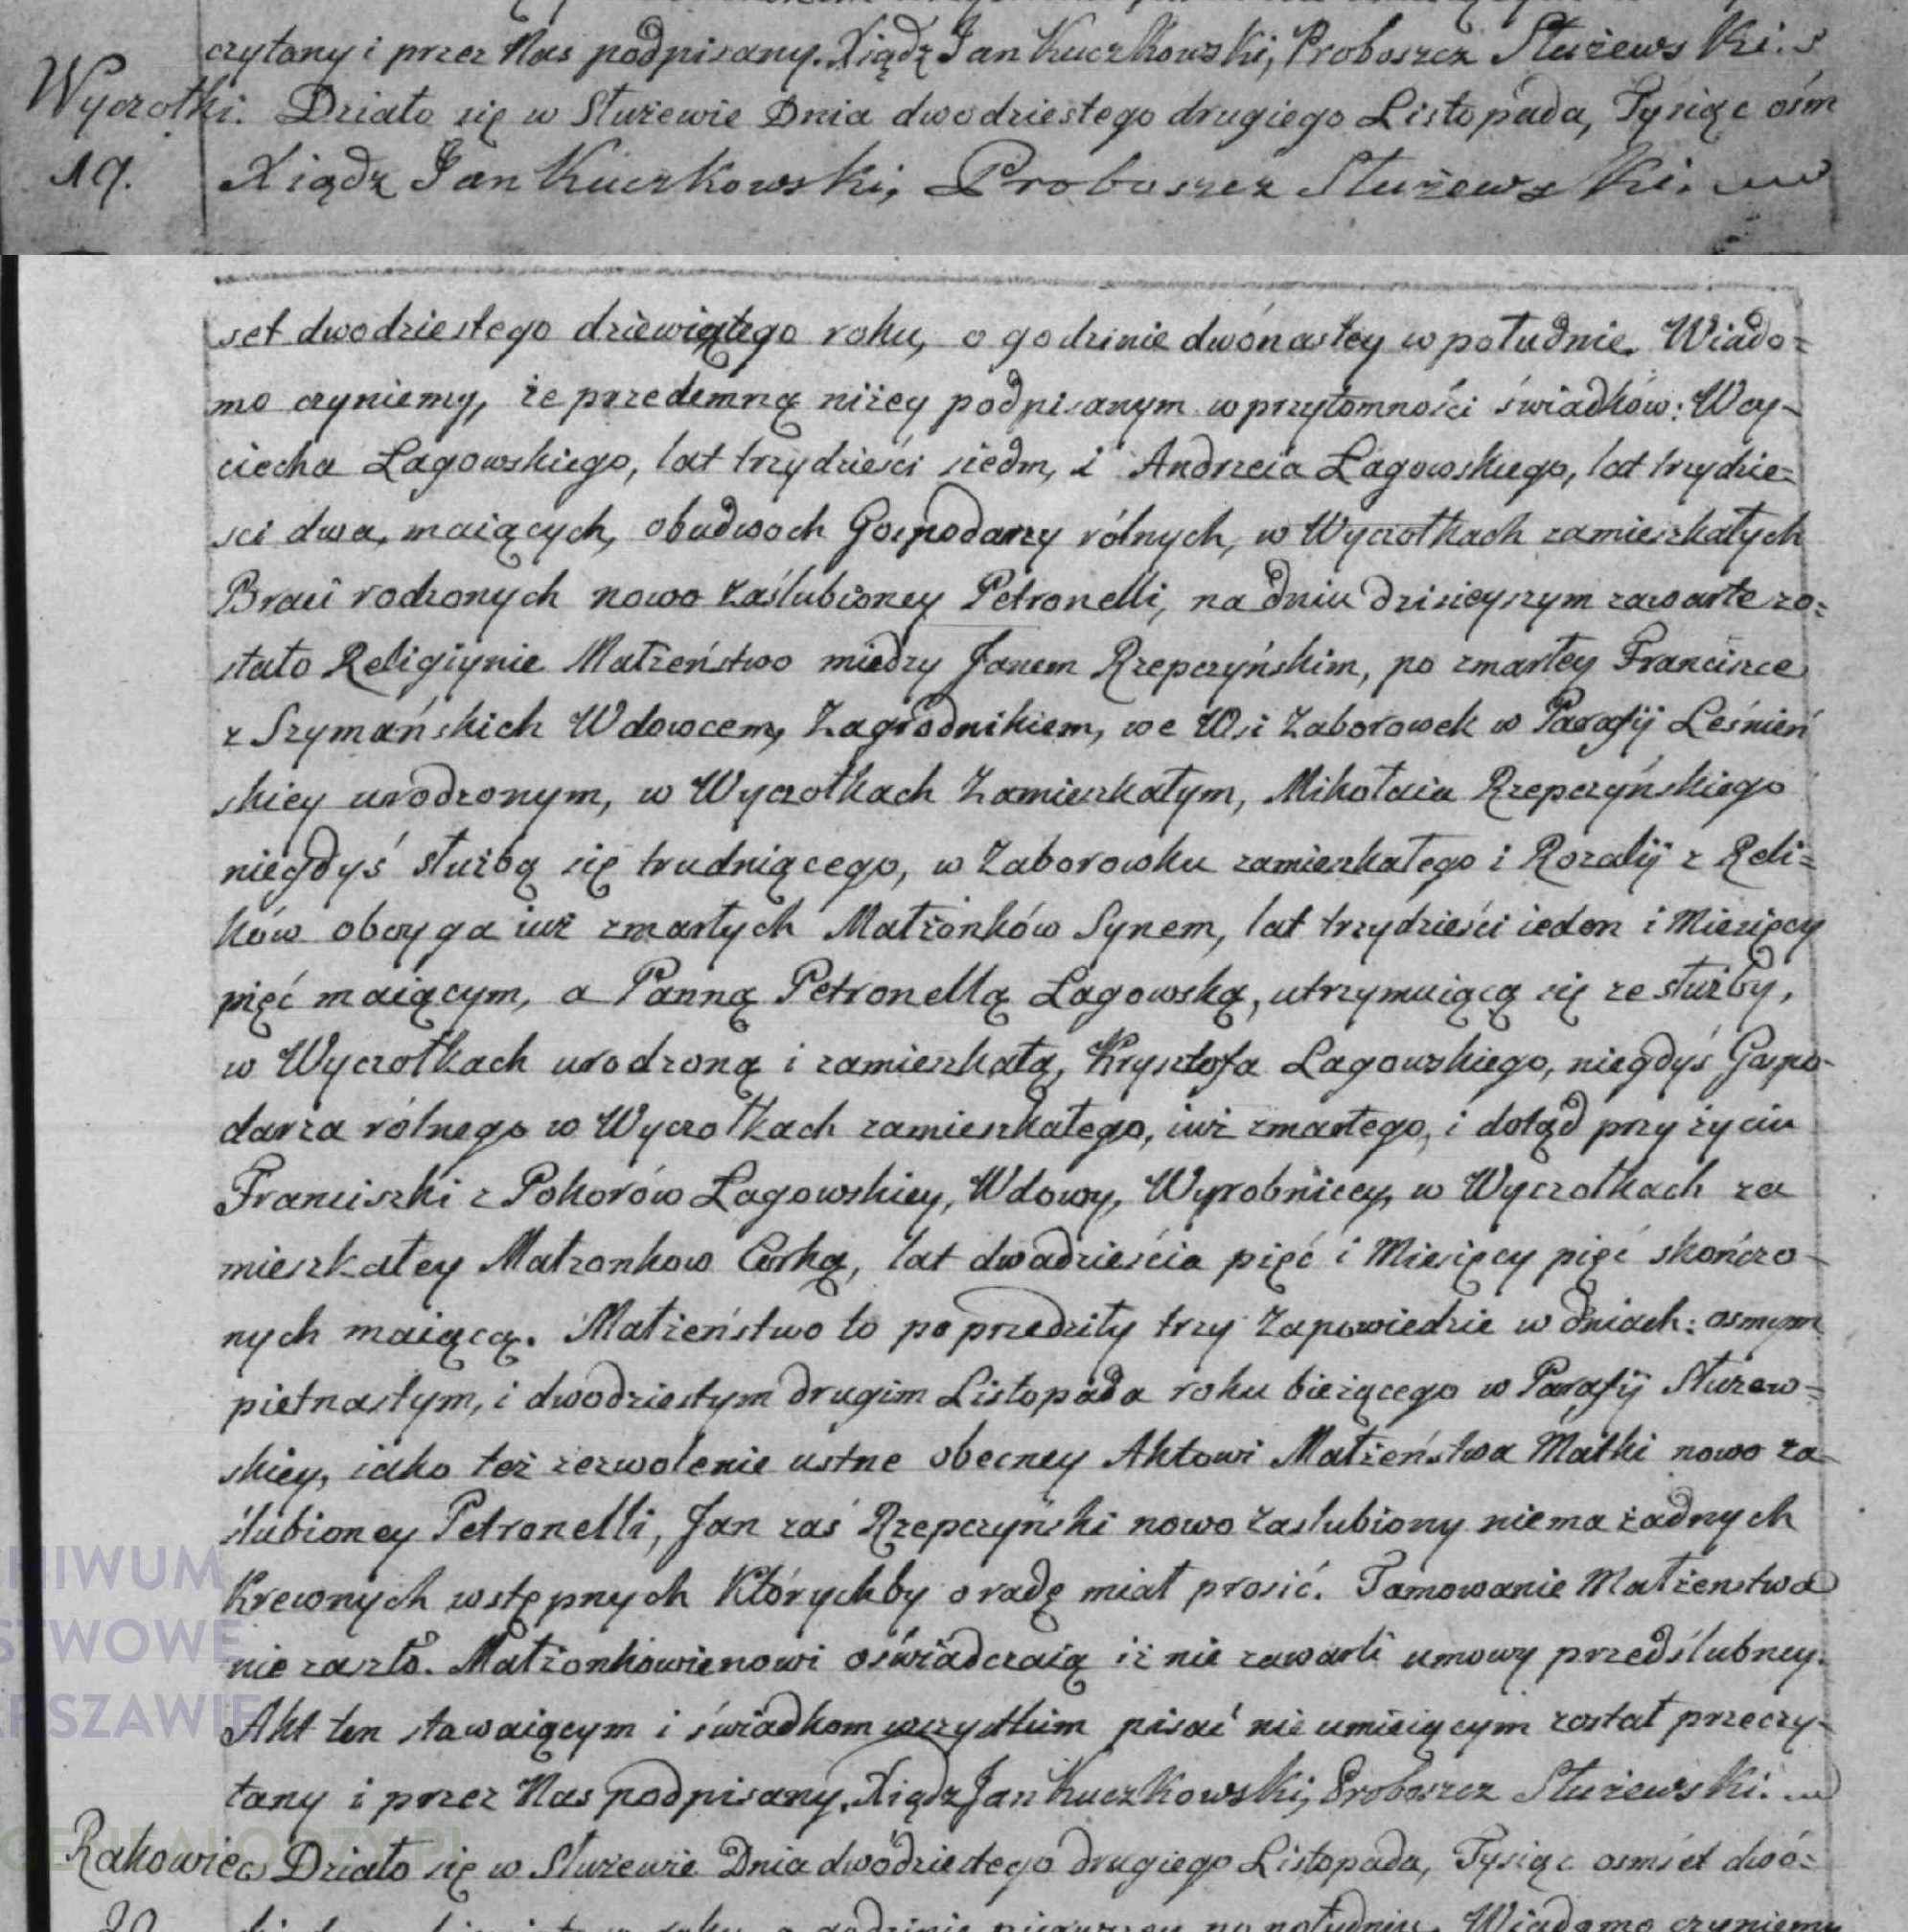 czytany i przez Nas podpisany. Xiądz Jan Kuczkowski, Proboszcz Służewski.
Wyczołki. Działo się w Służewie Dnia dwodziestego drugiego Listopada, Tysiąc ośm
19. Xiądz Jan Kuczkowski, Proboszcz Służewski.
set dwodziestego dziewiątego roku, o godzinie dwónastey w południe. Wiado=
mo czyniemy, że przedemną niżey podpisanym w przytomności świadków: Woy-
ciecha Łagowskiego, lat trzydzieści siedm, i Andrzeia Łagowskiego, lat trzydzie=
sci dwa, maiących, obudwoch Gospodarzy rólnych, w Wyczołkach zamieszkałych
Braci rodzonych nowo zaślubioney Petronelli, na dniu dzisieyszym zawarte zo=
stało Religiynie Małżeństwo miedzy Janem Rzepczyńskim, po zmarłey Franciszce
z Szymańskich Wdowcem, Zagrodnikiem, we Wsi Zaborowek w Parafij Leśnień
skiey urodzonym, w Wyczołkach Zamieszkałym, Mikołaia Rzepczyńskiego
niegdyś służbą się trudniącego, w Zaborowku zamieszkałego i Rozalij z Reli=
ków oboyga iuż zmarłych Małżonków Synem, lat trzydzieści ieden i Miesięcy
pięć maiącym, a Panną Petronellą Łagowską, utrzymuiącą się ze służby,
w Wyczołkach urodzoną i zamieszkałą, Krysztofa Łagowskiego, niegdyś Gospo-
darza rólnego w Wyczołkach zamieszkałego, iuż zmarłego, i dotąd przy życiu
Franciszki z Pokorów Łagowskiey, Wdowy, Wyrobnicey, w Wyczołkach za
mieszkałey Małżonkow Corką, lat dwadzieścia pięć i Miesięcy pięć skończo-
nych maiącą. Małżeństwo to poprzedziły trzy Zapowiedzie w dniach: osmym
pietnastym, i dwodziestym drugim Listopada roku bieżącego w Parafij Służew=
skiey, iako też zezwolenie ustne obecney Aktowi Małżeństwa Matki nowo za-
ślubioney Petronelli, Jan zaś Rzepczyński nowo zaslubiony niema żadnych
Krewnych wstępnych Którychby o radę miał prosić. Tamowanie Małżenstwa
nie zaszło. Małżonkowienowi oświadczaią iż nie zawarli umowy przedślubney.
Akt ten stawaiącym i świadkom wszystkim pisać nie umieiącym został przeczy-
tany i przez Nas podpisany. Xiądz Jan Kuczkowski, Proboszcz Służewski.
Rakowiec Działo się w Służewie Dnia dwódziestego drugiego Listopada, Tysiąc osmset dwó=
20 roku, o godzinie pierwszey po południu. Wiadomo czyniemy